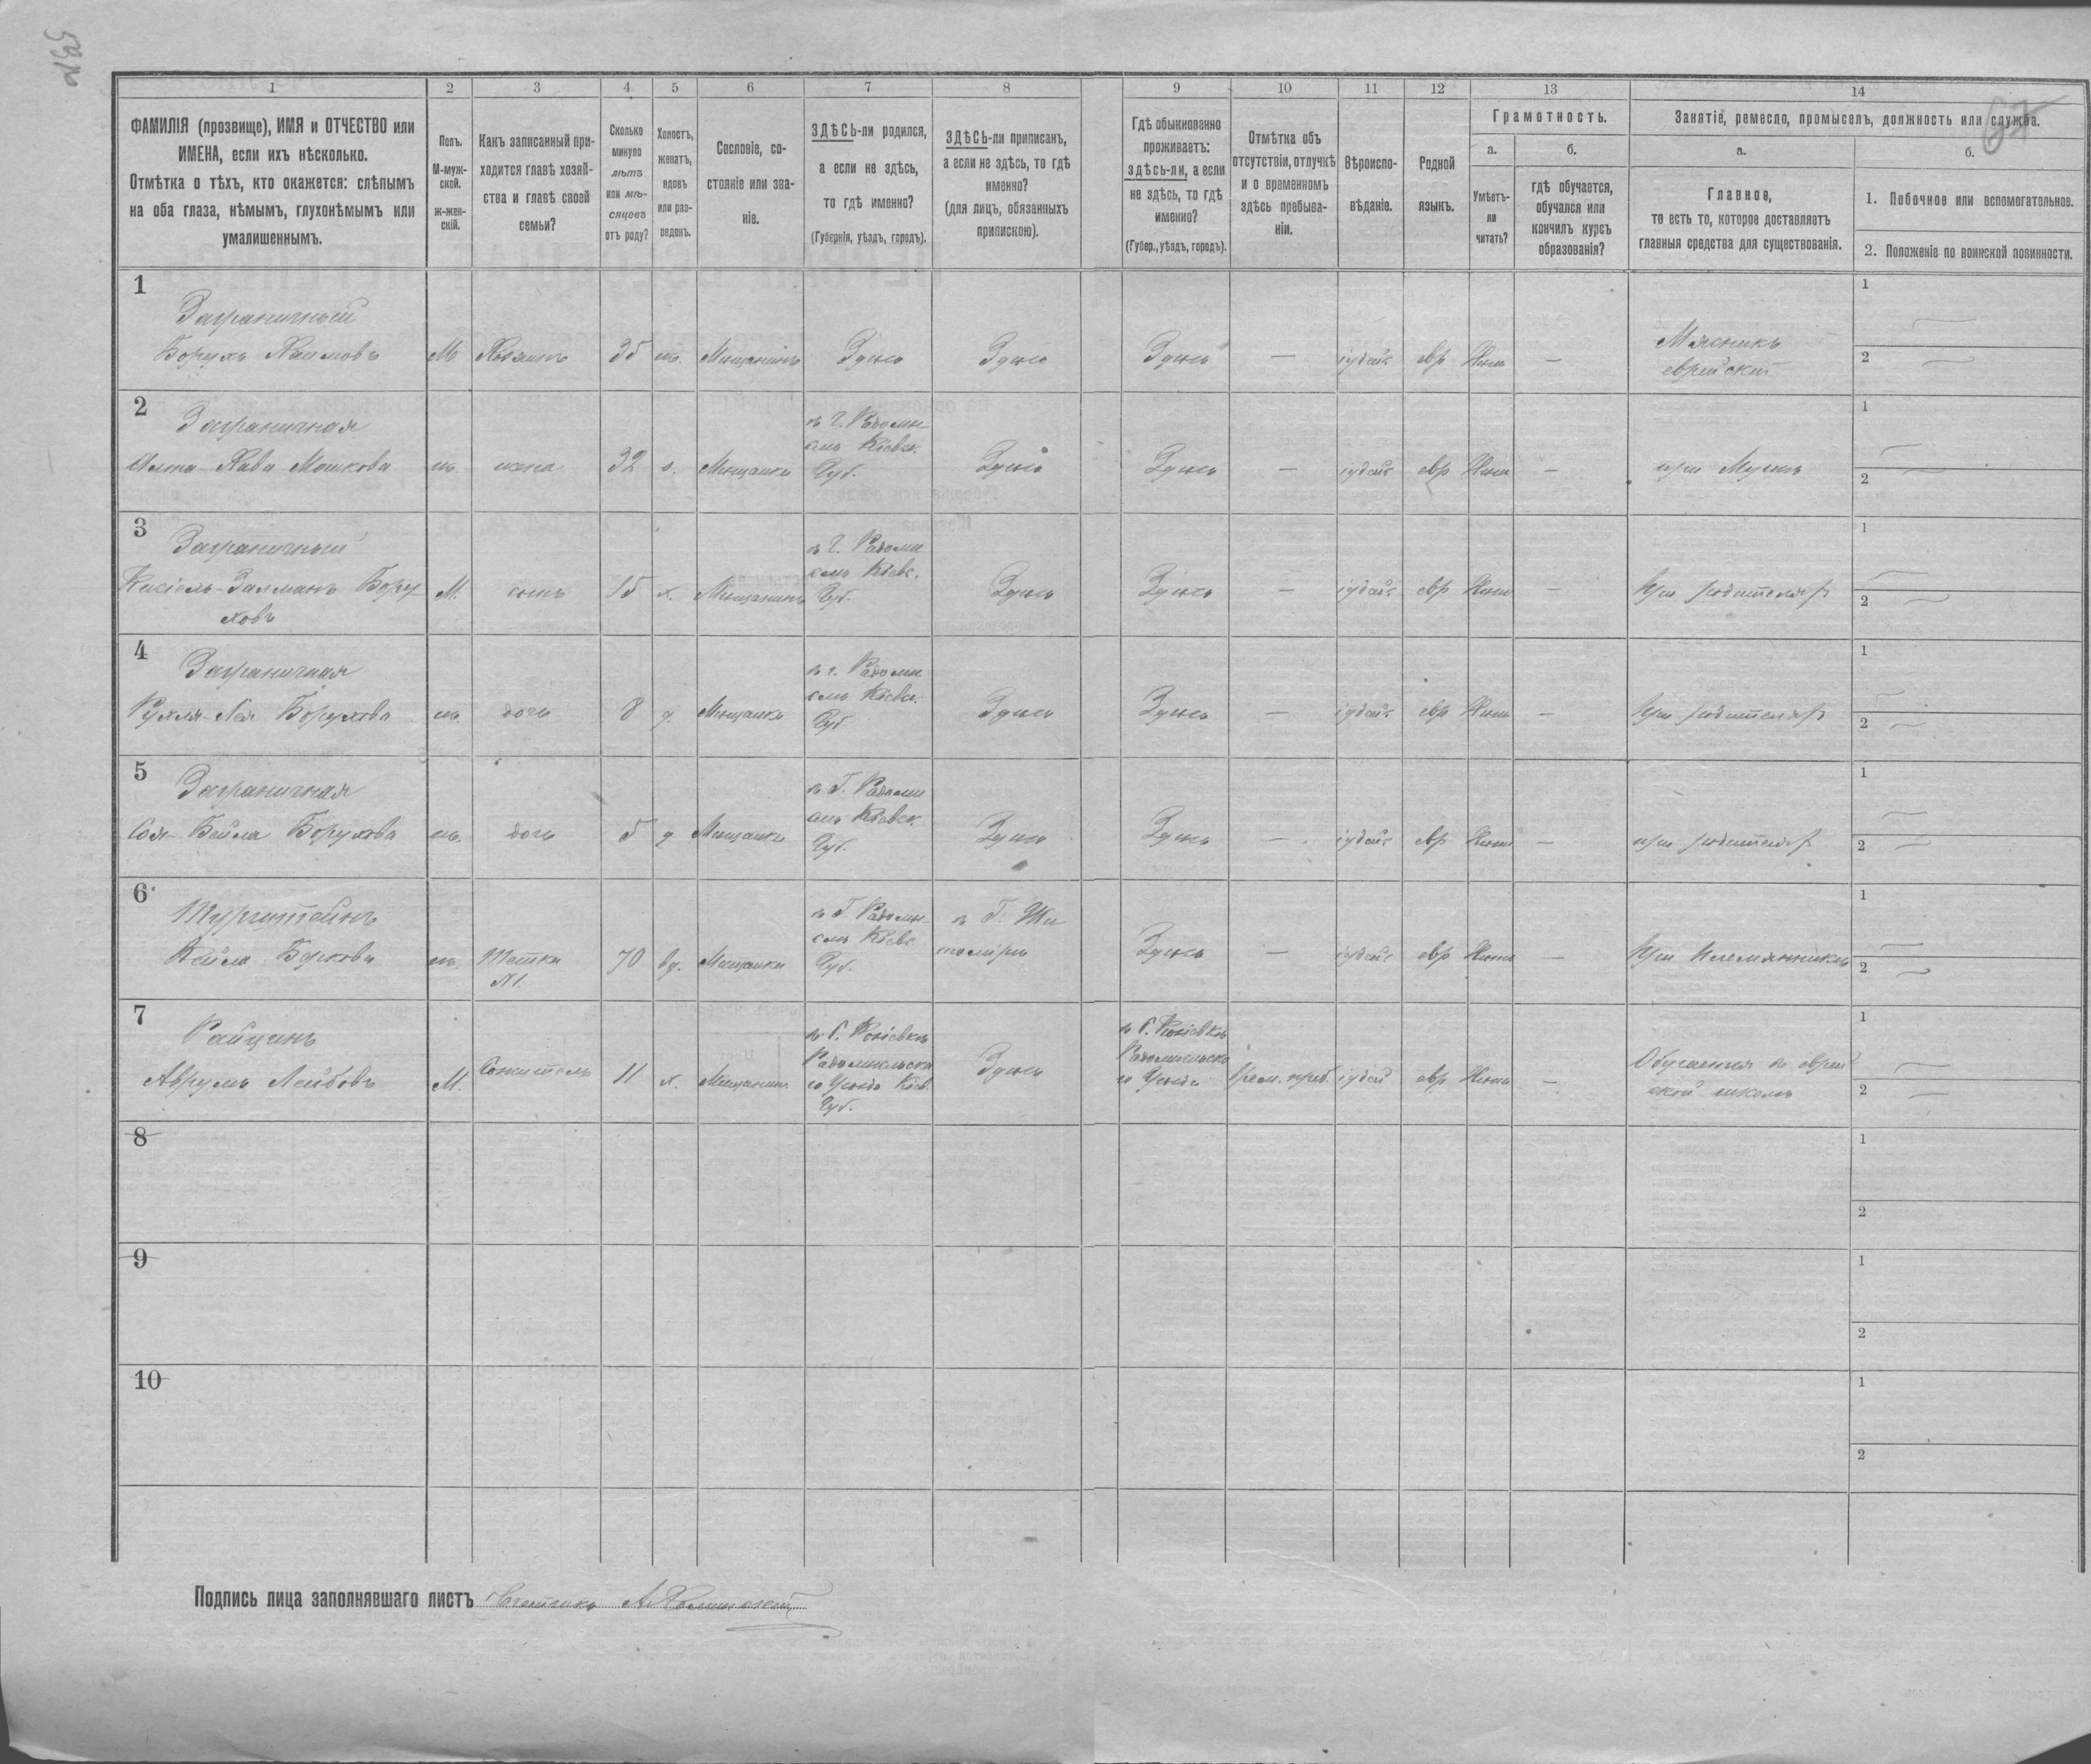 1 2 3 4 5 6 7 8 9 10 11 12 13 14
ФАМИЛІЯ (прозвище), ИМЯ и ОТЧЕСТВО или
ИМЕНА, если ихъ нѣсколько.
Отмѣтка о тѣхъ, кто окажется: слѣпымъ
на оба глаза, нѣмымъ, глухонѣмымъ или
умалишеннымъ.
Полъ.
М-муж-
ской.
ж-жен-
скій.
Какъ записанный при-
ходится главѣ хозяй-
ства и главѣ своей
семьи?
Сколько
минуло
лѣтъ
или мѣ-
сяцевъ
отъ роду?
Холостъ,
женатъ,
вдовъ
или раз-
веденъ.
Сословіе, со-
стояніе или зва-
ніе.
ЗДѢСЬ-ли родился,
а если не здѣсь,
то гдѣ именно?
(Губернія, уѣздъ, городъ).
ЗДѢСЬ-ли приписанъ,
а если не здѣсь, то гдѣ
именно?
(для лицъ, обязанныхъ
припискою).
Гдѣ обыкновенно
проживаетъ:
здѣсь-ли, а если
не здѣсь, то гдѣ
именно?
(Губер., уѣздъ, городъ).
Отмѣтка объ
отсутствіи, отлучкѣ
и о временномъ
здѣсь пребыва-
ніи.
Вѣроиспо-
вѣданіе.
Родной
языкъ.
Грамотность.
а.
Умѣетъ-
ли
читать?
б.
гдѣ обучается,
обучался или
кончилъ курсъ
образованія?
Занятіе, ремесло, промыселъ, должность или служба.
а.
Главное,
то есть то, которое доставляетъ
главныя средства для существованія.
б.
1. Побочное или вспомогательное.
2. Положеніе по воинской повинности.
1
Заграничный
Борухъ Хаимовъ
М
Хозяинъ
35
ж.
Мещанинъ
Здѣсь
Здѣсь
Здѣсь
—
іудейс
евр
Нѣтъ
—
Мясникъ
еврейскій
1
2
2
Заграничная
Хава Мошкова
ж.
жена
32
з.
Мещанка
въ Г. Радомы
слѣ Кіевск.
Губ.
Здѣсь
Здѣсь
—
іудейс
евр
Нѣтъ
—
при Мужѣ
1
2
3
Заграничный
Кисіель-Залманъ Бору
ховъ
М.
сынъ
15
х.
Мещанинъ
въ Г. Радомы
слѣ Кіевс.
Губ.
Здѣсь
Здѣсь
—
іудейс
евр
Нѣтъ
—
при родителяхъ
1
2
4
Заграничная
Рухля-Лея Борухова
ж.
дочь
8
д.
Мещанка
въ г. Радомы
слѣ Кіевск.
Губ.
Здѣсь
Здѣсь
—
іудейс
евр
Нѣтъ
—
при родителяхъ
1
2
5
Заграничная
Бейла Борухова
ж.
дочь
5
д
Мещанка
въ Г. Радомы
слѣ Кіевск.
Губ.
Здѣсь
Здѣсь
—
іудейс
евр
Нѣтъ
—
при родителяхъ
1
2
6
Кейла Беркова
ж.
Тетка
70
вд.
Мещанка
въ Г. Радомы
слѣ Кіевс
Губ.
въ Г. Жи
томірѣ
Здѣсь
—
іудейс
евр
Нѣтъ
—
при Племянникѣ
1
2
7
Райцинъ
Аврумъ Лейбовъ
М.
Сожитель
11
х.
Мещанинъ
Радомысльска
го Уѣзда Кіев.
Губ.
Здѣсь
Радомысльска
го Уѣзда
Врем. преб.
іудей
евр
Нѣтъ
—
Обучается въ еврей
ской школѣ
1
2
8
1
2
9
1
2
10
1
2
Подпись лица заполнявшаго листъ Счетчикъ